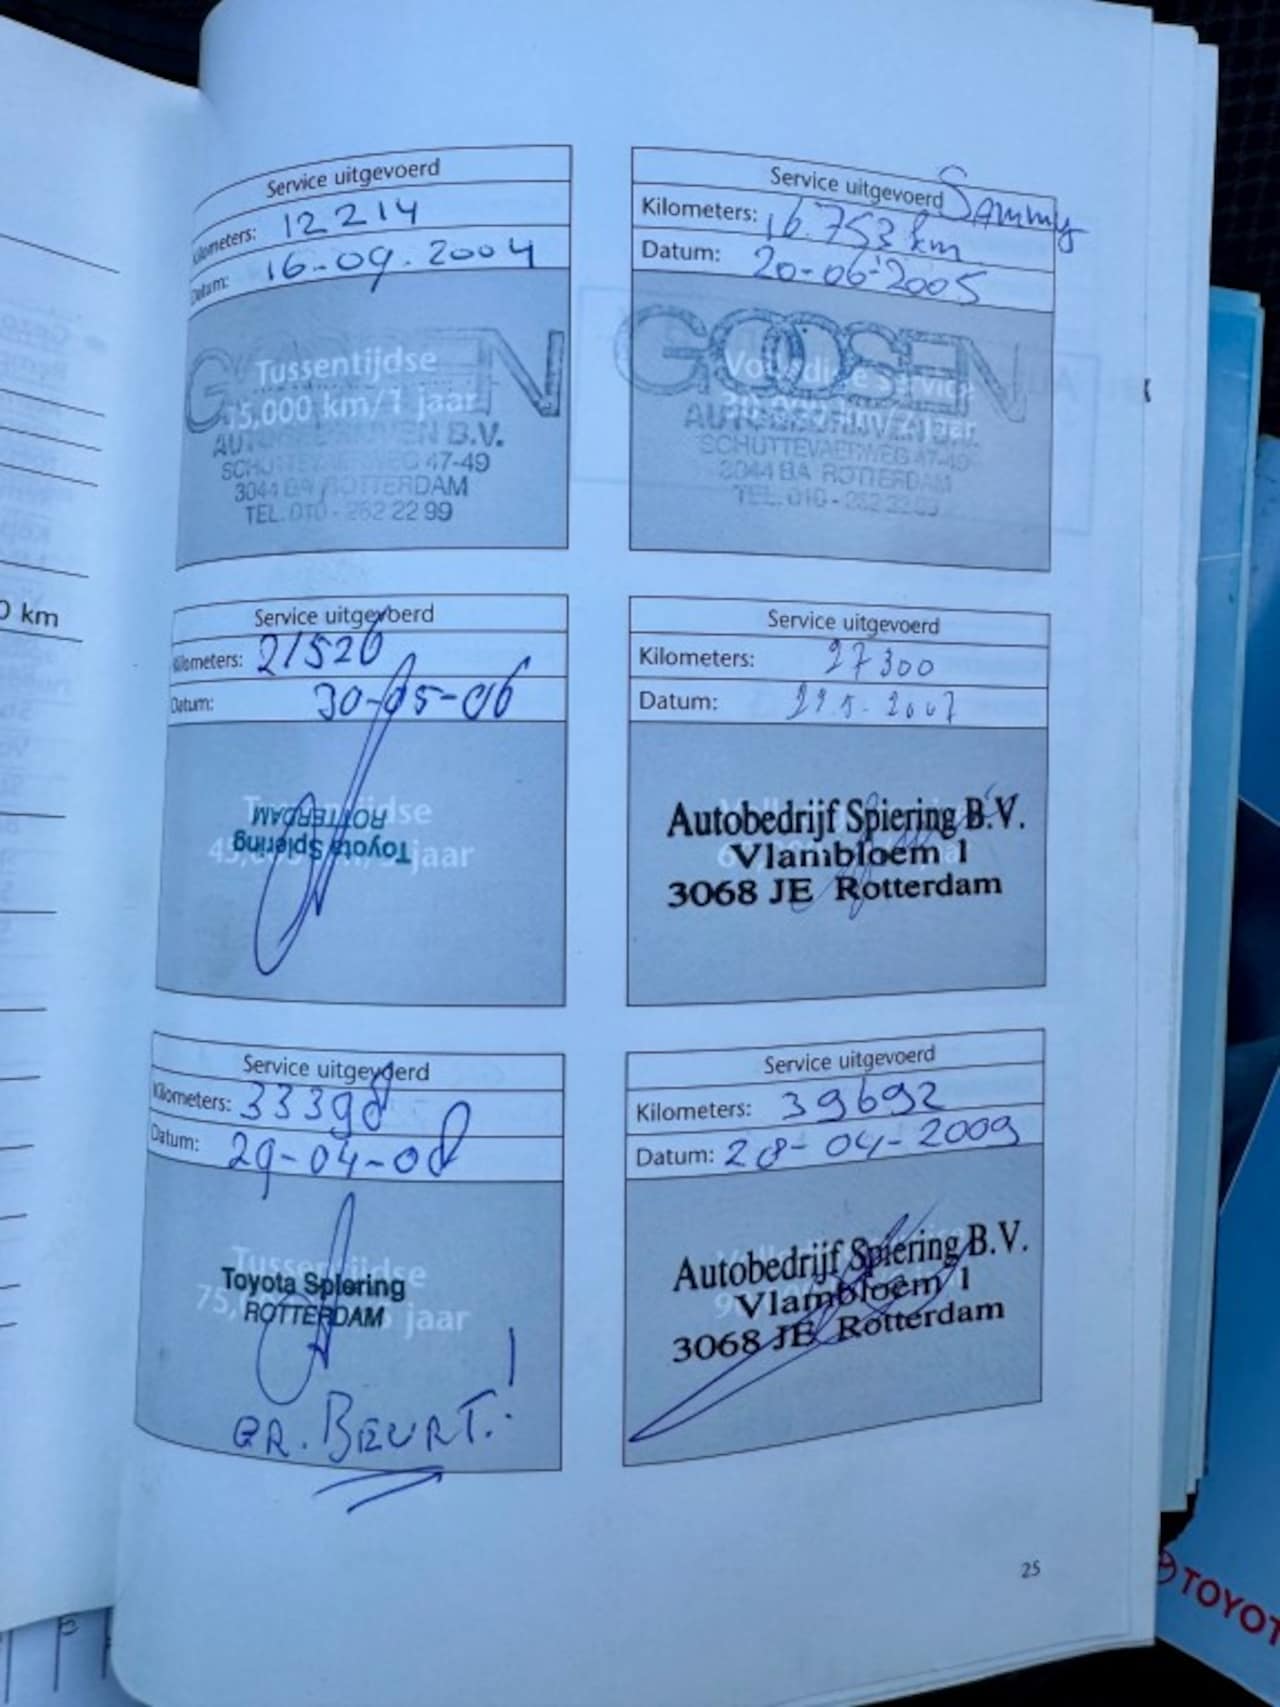 0 km
Service uitgevoerd
Kilometers: 12214
Datum: 16-09-2004
Tussentijdse
15,000 km/1 jaar
GOOSEN
AUTOBEDRIJVEN B.V.
SCHUTTEVAERWEG 47-49
3044 BA ROTTERDAM
TEL. 010 - 262 22 99
Service uitgevoerd
Sammy
Kilometers: 16.753 km
Datum: 20-06-2005
Volledige service
GOOSEN
AUTOBEDRIJVEN B.V.
SCHUTTEVAERWEG 47-49
3044 BA ROTTERDAM
TEL. 010 - 262 22 99
Service uitgevoerd
Kilometers: 21526
Datum: 30-05-06
Tussentijdse
jaar
Toyota Spiering
ROTTERDAM
Service uitgevoerd
Kilometers: 27300
Datum: 2007
Autobedrijf Spiering B.V.
Vlambloem 1
3068 JE Rotterdam
Service uitgevoerd
Kilometers: 33398
Datum: 29-04-08
Tussentijdse
75, jaar
Toyota Spiering
ROTTERDAM
GR. BEURT!
Service uitgevoerd
Kilometers: 39692
Datum: 28-04-2009
Autobedrijf Spiering B.V.
Vlambloem 1
3068 JE Rotterdam
25
TOYOT